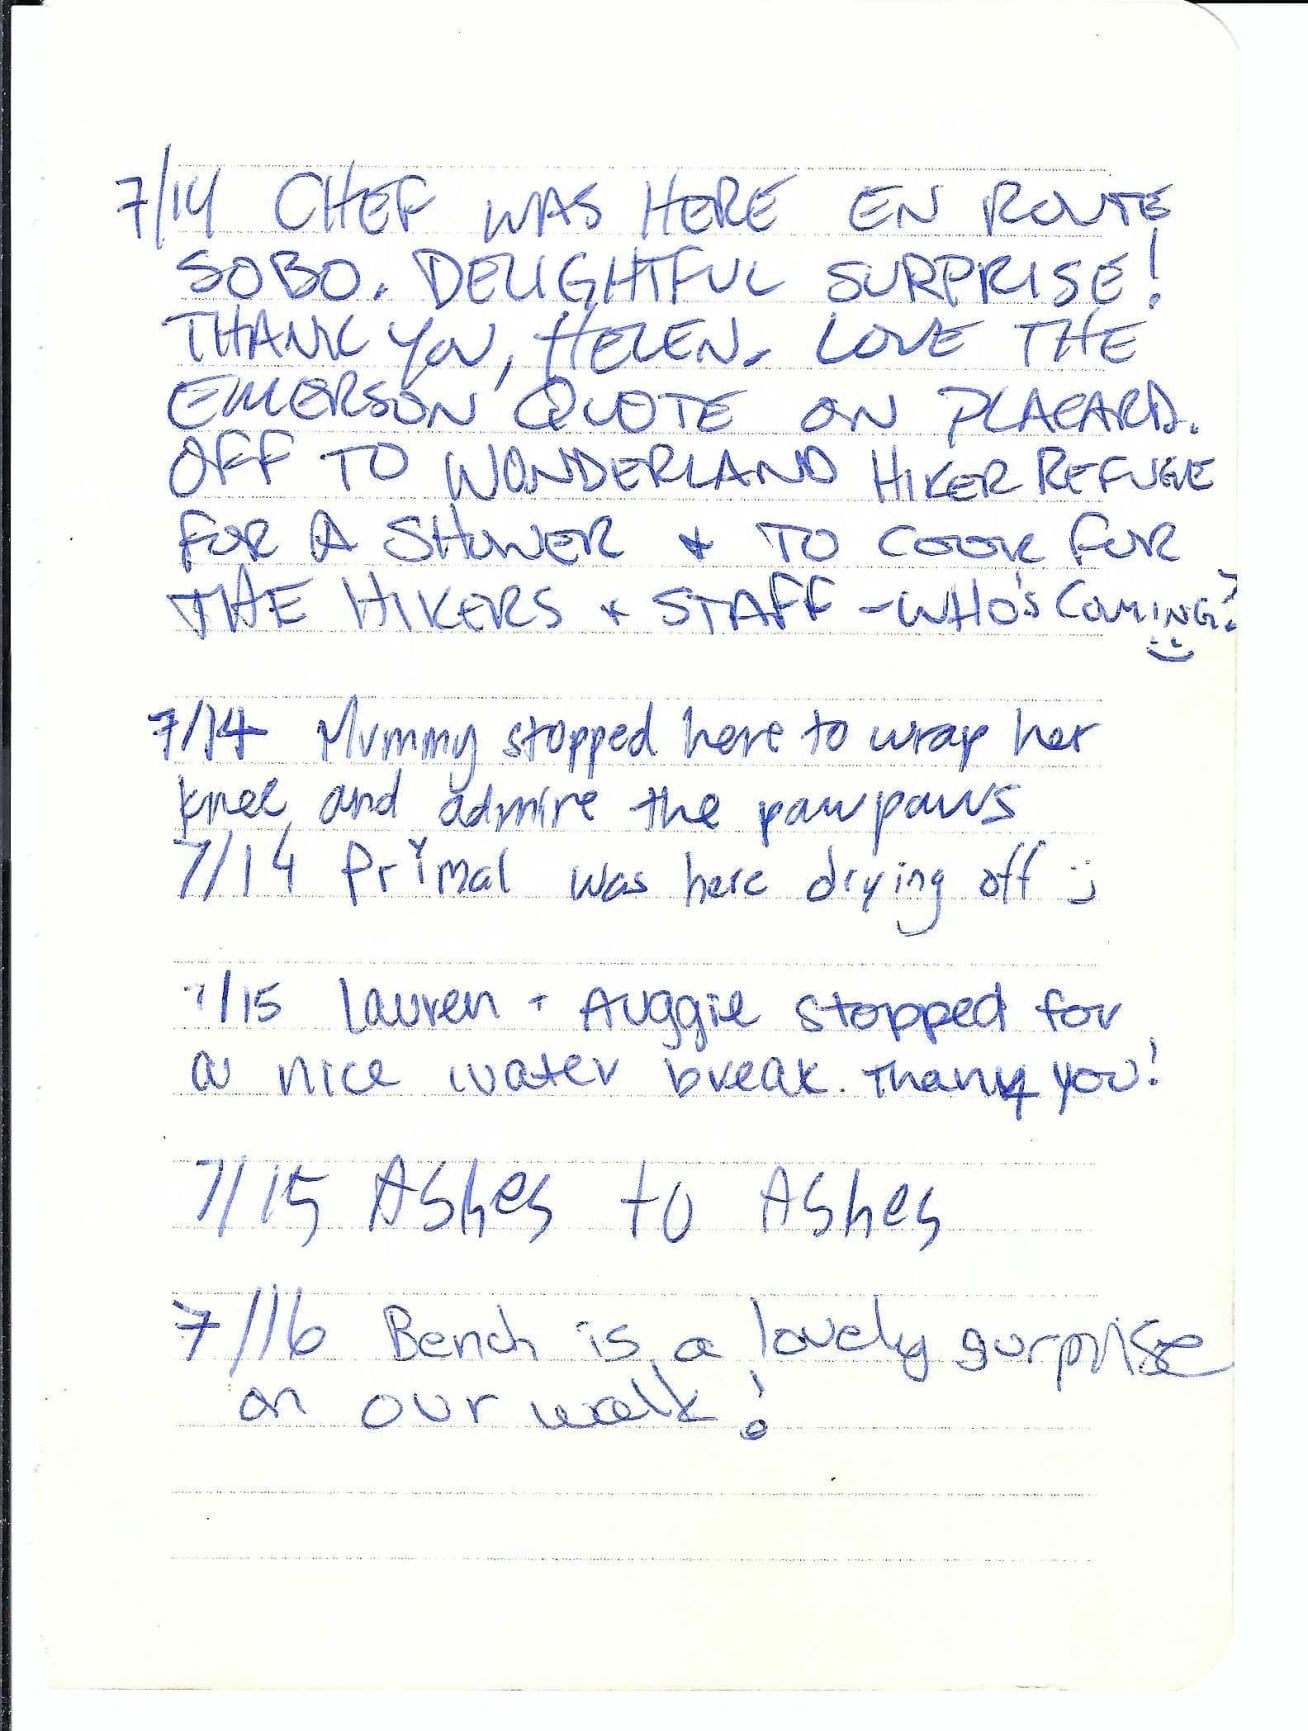 7/14 CHEF WAS HERE EN ROUTE
SOBO. DELIGHTFUL SURPRISE!
THANK YOU, HELEN. LOVE THE
EMERSON QUOTE ON PLACARD.
OFF TO WONDERLAND HIKER REFUGE
FOR A SHOWER + TO COOK FOR
THE HIKERS + STAFF - WHO'S COMING?
:)
7/14 Mummy stopped here to wrap her
knee and admire the pawpaws
7/14 Primal was here drying off :)
7/15 Lauren + Auggie stopped for
a nice water break. Thank you!
7/15 Ashes to Ashes
7/16 Bench is a lovely surprise
on our walk!